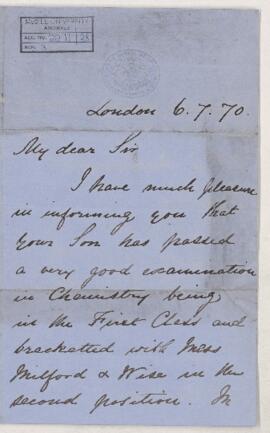 McGILL UNIVERSITY
ARCHIVES
ACC. NO.
REF.
London 6.7.70.
My dear Sir
I have much pleasure
in informing you that
your Son has passed
a very good examination
in Chemistry being
in the First Class and
bracketted with Mess
Milford & Wise in the
second position. In